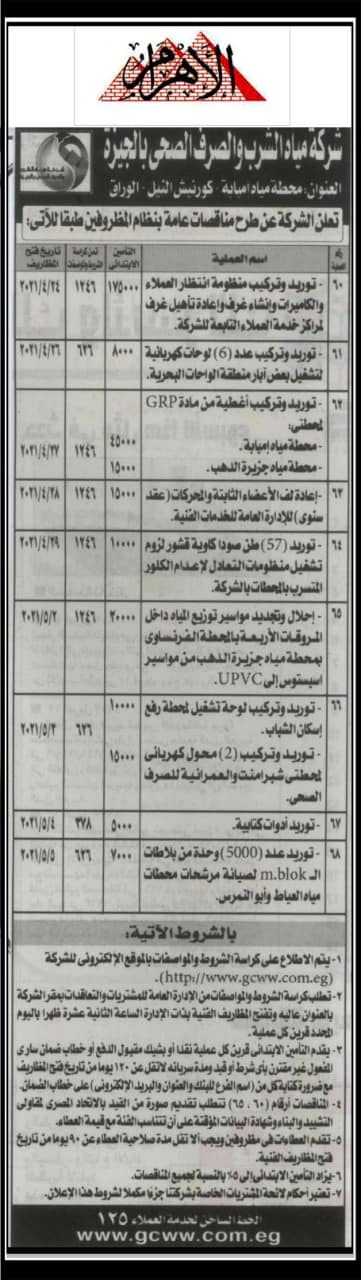 الأهرام
شركة مياه الشرب والصرف الصحى بالجيزة
العنوان: محطة مياه امبابة - كورنيش النيل - الوراق
تعلن الشركة عن طرح مناقصات عامة بنظام المظروفين طبقا للآتى:
رقم العملية
اسم العملية
التأمين الابتدائى
ثمن كراسة الشروط
تاريخ فتح المظاريف
٦٠
- توريد وتركيب منظومة انتظار العملاء
والكاميرات وإنشاء غرف وإعادة تأهيل غرف
لمراكز خدمة العملاء التابعة للشركة.
١٧٥٠٠٠
١٢٤٦
٢٠٢١/٤/٢٤
٦١
- توريد وتركيب عدد (6) لوحات كهربائية
لتشغيل بعض آبار منطقة الواحات البحرية.
٨٠٠٠
٦٣٦
٢٠٢١/٤/٢٦
٦٢
- توريد وتركيب أغطية من مادة GRP
لمحطتى:
- محطة مياه إمبابة.
- محطة مياه جزيرة الدهب.
٤٥٠٠٠
١٥٠٠٠
١٢٤٦
٢٠٢١/٤/٢٧
٦٣
- إعادة لف الأعضاء الثابتة والمحركات (عقد
سنوى) للإدارة العامة للخدمات الفنية.
١٥٠٠٠
١٢٤٦
٢٠٢١/٤/٢٨
٦٤
- توريد (57) طن صودا كاوية قشور لزوم
تشغيل منظومات التعادل لإعدام الكلور
المتسرب بالمحطات بالشركة.
١٠٠٠٠
١٢٤٦
٢٠٢١/٤/٢٩
٦٥
- إحلال وتجديد مواسير توزيع المياه داخل
المروقات الأربعة بالمحطة الفرنساوى
بمحطة مياه جزيرة الدهب من مواسير
اسبستوس إلى UPVC.
٢٠٠٠٠
١٢٤٦
٢٠٢١/٥/٢
٦٦
- توريد وتركيب لوحة تشغيل لمحطة رفع
إسكان الشباب.
- توريد وتركيب (2) محول كهربائى
لمحطتى شبرامنت والعمرانية للصرف
الصحى.
١٠٠٠٠
١٥٠٠٠
٦٣٦
٢٠٢١/٥/٣
٦٧
- توريد أدوات كتابية.
٥٠٠٠
٣٧٨
٢٠٢١/٥/٤
٦٨
- توريد عدد (5000) وحدة من بلاطات
الـ m.blok لصيانة مرشحات محطات
مياه العياط وأبو النمرس.
٧٠٠٠
٦٣٦
٢٠٢١/٥/٥
بالشروط الآتية:
١- يتم الاطلاع على كراسة الشروط والمواصفات بالموقع الإلكترونى للشركة
(http://www.gcww.com.eg).
٢- تطلب كراسة الشروط والمواصفات من الإدارة العامة للمشتريات والتعاقدات بمقر الشركة
بالعنوان عاليه وتفتح المظاريف الفنية بذات الإدارة الساعة الثانية عشرة ظهرا باليوم
المحدد قرين كل عملية.
٣- يقدم التأمين الابتدائى قرين كل عملية نقدا أو بشيك مقبول الدفع أو خطاب ضمان سارى
المفعول غير مقترن بأى شرط أو قيد ومدة سريانه لا تقل عن ١٢٠ يوما من تاريخ فتح المظاريف
مع ضرورة كتابة كل من (اسم الفرع للبنك والعنوان والبريد الإلكترونى) على خطاب الضمان.
٤- المناقصات أرقام (٦٠، ٦٥) تتطلب تقديم صورة من القيد بالاتحاد المصرى لمقاولى
التشييد والبناء وشهادة البيانات المؤقتة على أن تتناسب الفئة مع قيمة العطاء.
٥- تقدم العطاءات فى مظروفين ويجب ألا تقل مدة صلاحية العطاء عن ٩٠ يوما من تاريخ
فتح المظاريف الفنية.
٦- يزاد التأمين الابتدائى إلى ٥٪ بالنسبة لجميع المناقصات.
٧- تعتبر أحكام لائحة المشتريات الخاصة بشركتنا جزءا مكملا لشروط هذا الإعلان.
الخط الساخن لخدمة العملاء ١٢٥
www.gcww.com.eg